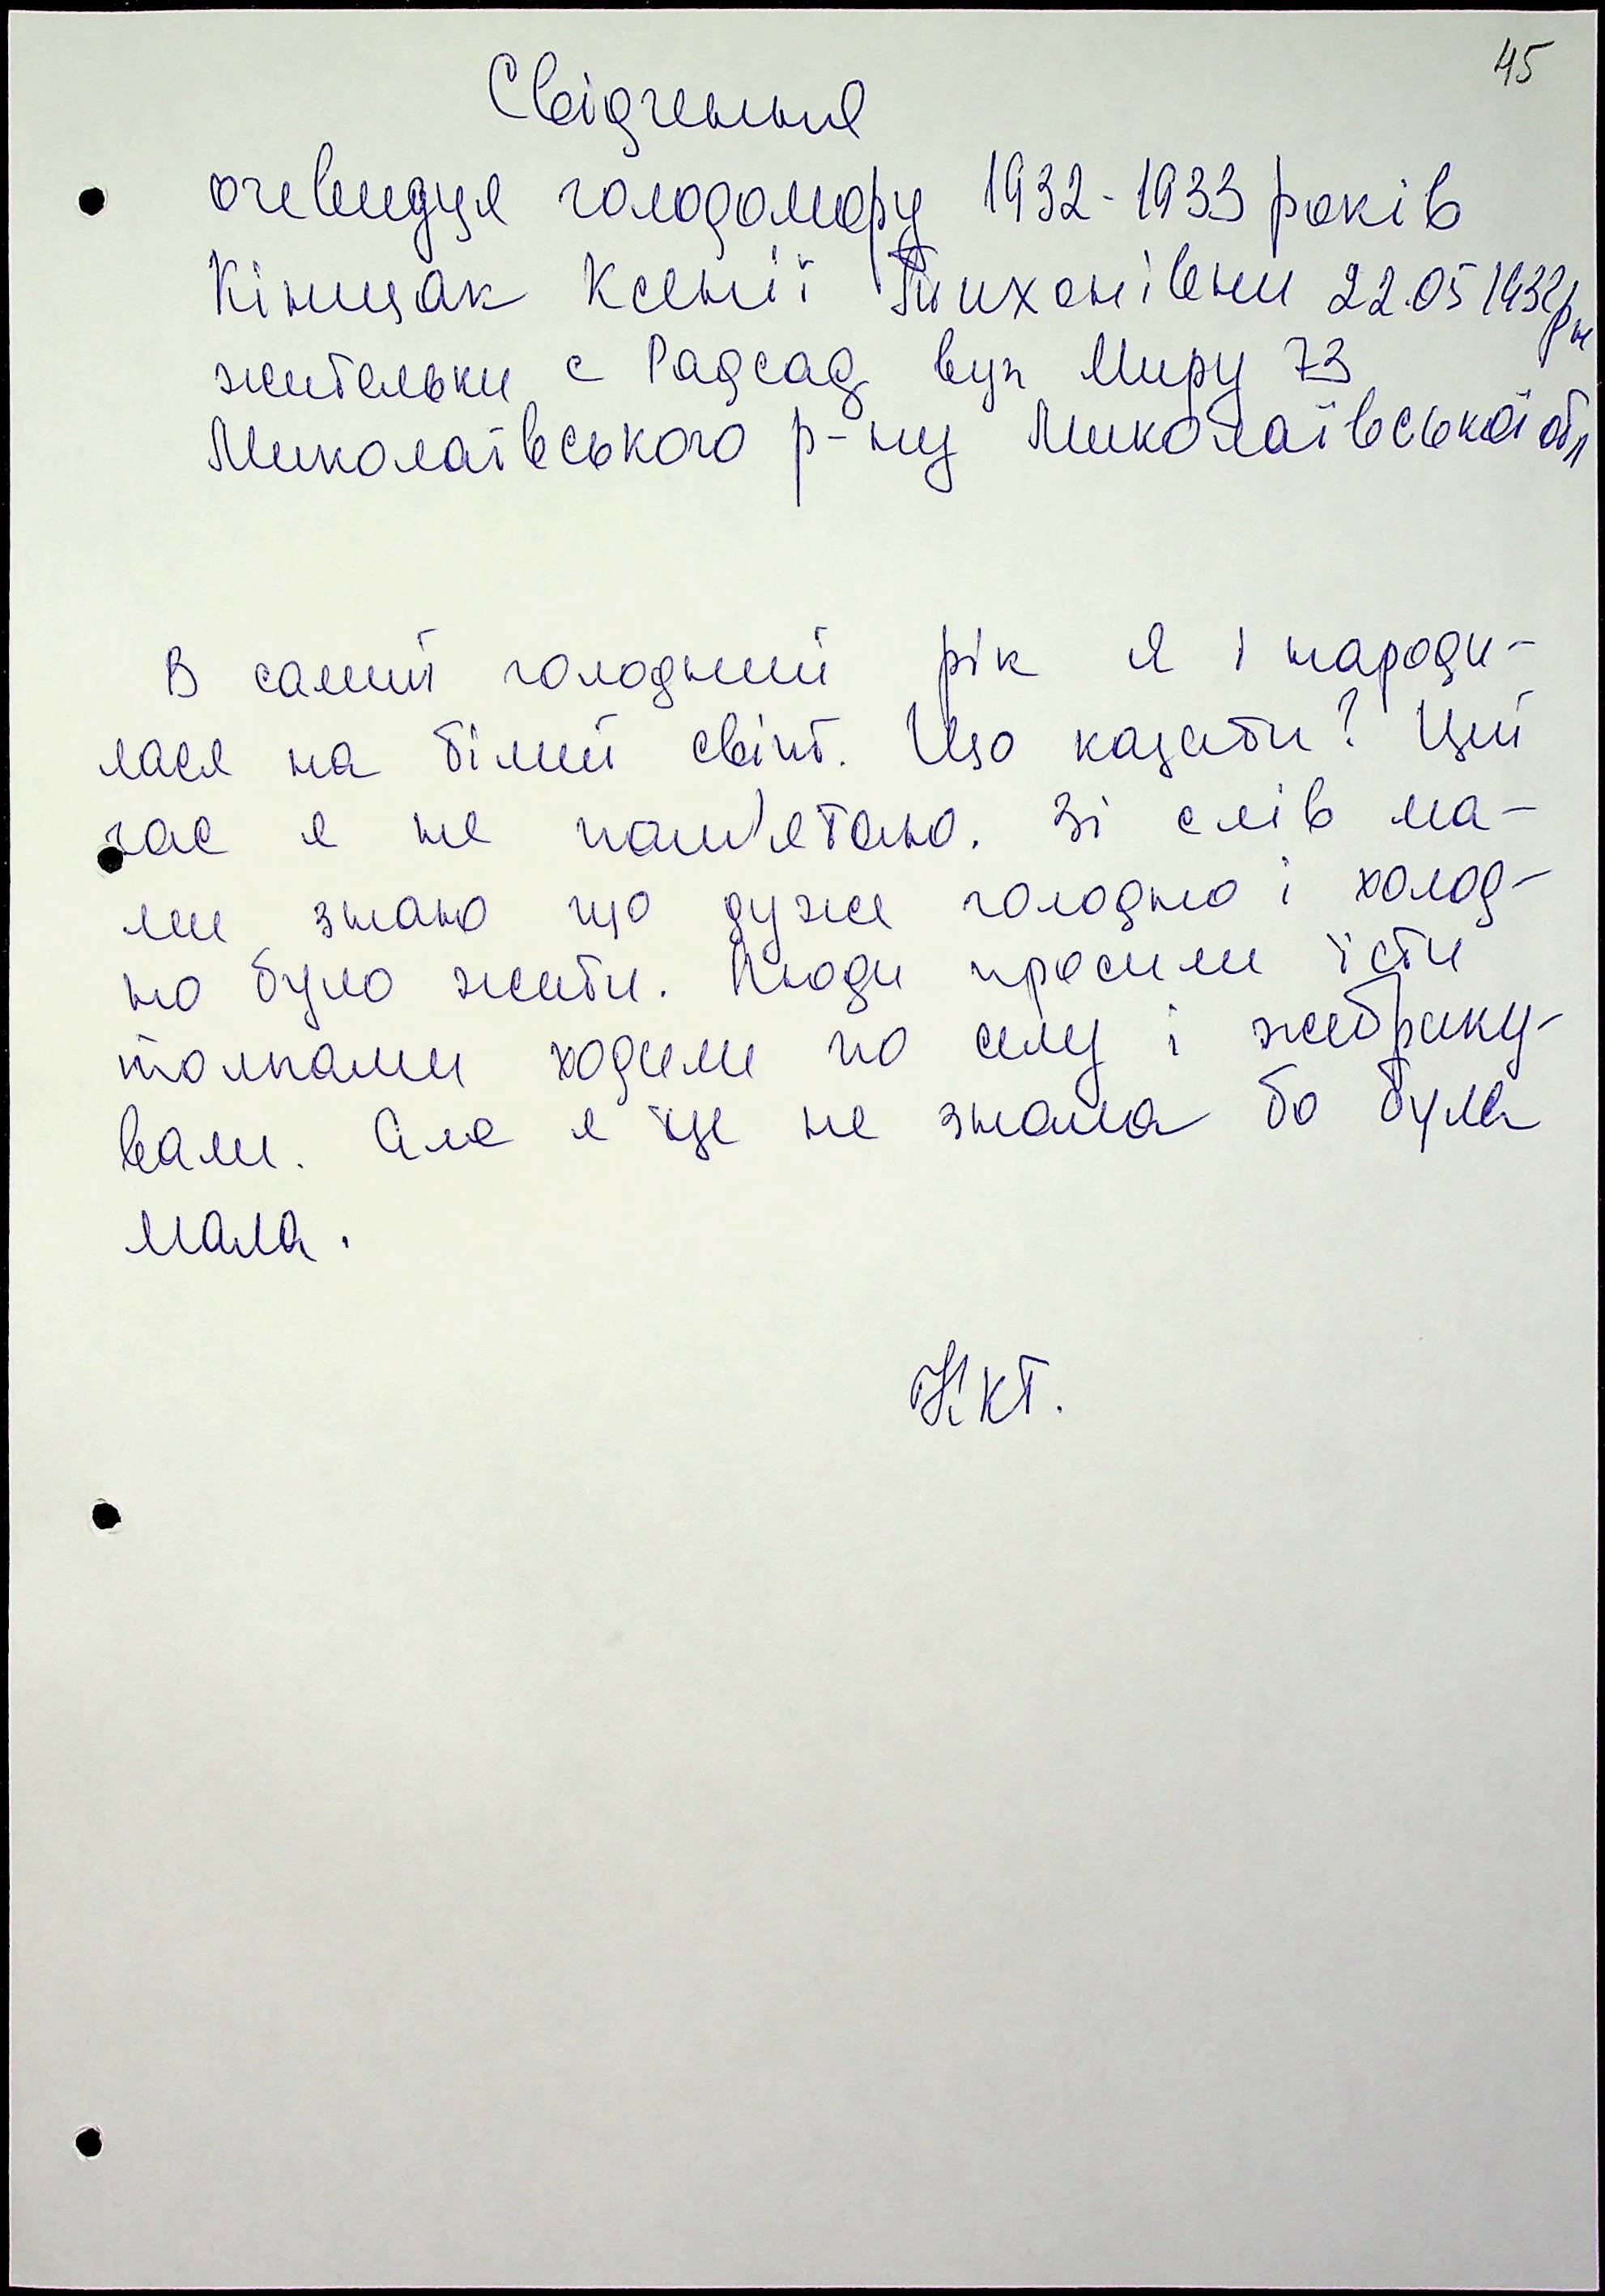 45
Свідчення
очевидця голодомору 1932-1933 років
Кінщак Ксенії Тихонівни 22.05 1932рн
жительки с Радсад вул Миру 73
Миколаївського р-ну Миколаївської обл
В самий голодний рік я і народи-
лася на білий світ. Що казати? Цей
час я не пам'ятаю. Зі слів ма-
ми знаю що дуже голодно і холод-
но було жити. Люди просили їсти
толпами ходили по селу і жебраку-
вали. Але я це не знала бо була
мала.
ККТ.